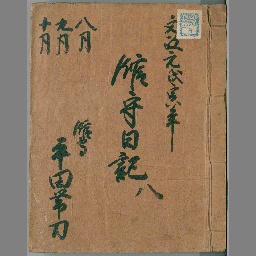 文政元戊寅年
館守日記 八
八月
九月
十月
館守
平田帯刀